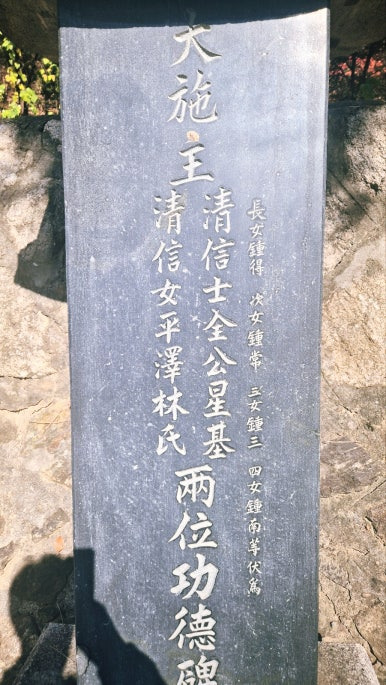 長女鍾得 次女鍾常 三女鍾三 四女鍾南等伏爲
大施主
清信士全公星基
清信女平澤林氏
兩位功德碑